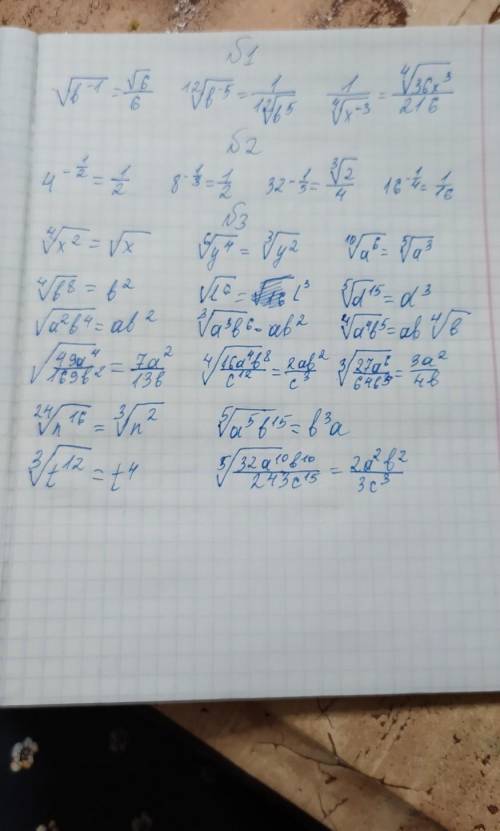 №1
√в⁻¹ = √6/6   ¹²√в⁻⁵ = 1/¹²√в⁵   1/⁴√x⁻³ = ⁴√36x³/216
№2
4^(-1/2) = 1/2   8^(-1/3) = 1/2   32^(-1/3) = ³√2/4   16^(-1/4) = 1/16
№3
⁴√x² = √x   ⁶√y⁴ = ³√y²   ¹⁰√a⁶ = ⁵√a³
⁴√в⁸ = в²   √l⁶ = l³   ⁵√d¹⁵ = d³
√a²в⁴ = aв²   ³√a³в⁶ = aв²   ⁴√a⁴в⁵ = aв ⁴√в
√49a⁴/169в² = 7a²/13в   ⁴√16a⁴в⁸/c¹² = 2aв²/c³   ³√27a⁶/64в³ = 3a²/4в
²⁴√n¹⁶ = ³√n²   ⁵√a⁵в¹⁵ = в³a
³√t¹² = t⁴   ⁵√32a¹⁰в¹⁰/243c¹⁵ = 2a²в²/3c³